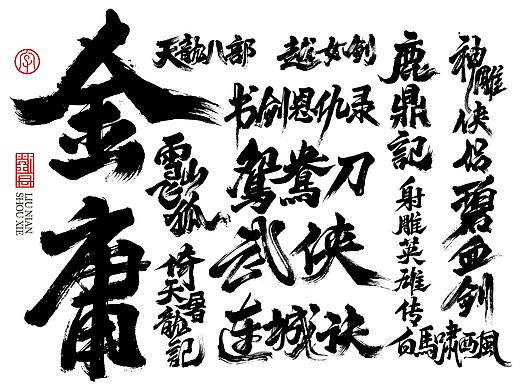 金庸
LIU NIAN
SHOU XIE
天龍八部
越女剑
书剑恩仇录
雪山飞狐
鸳鸯刀
武侠
连城诀
倚天屠龍記
鹿鼎記
射雕英雄传
神雕侠侣
碧血剑
白馬啸西風